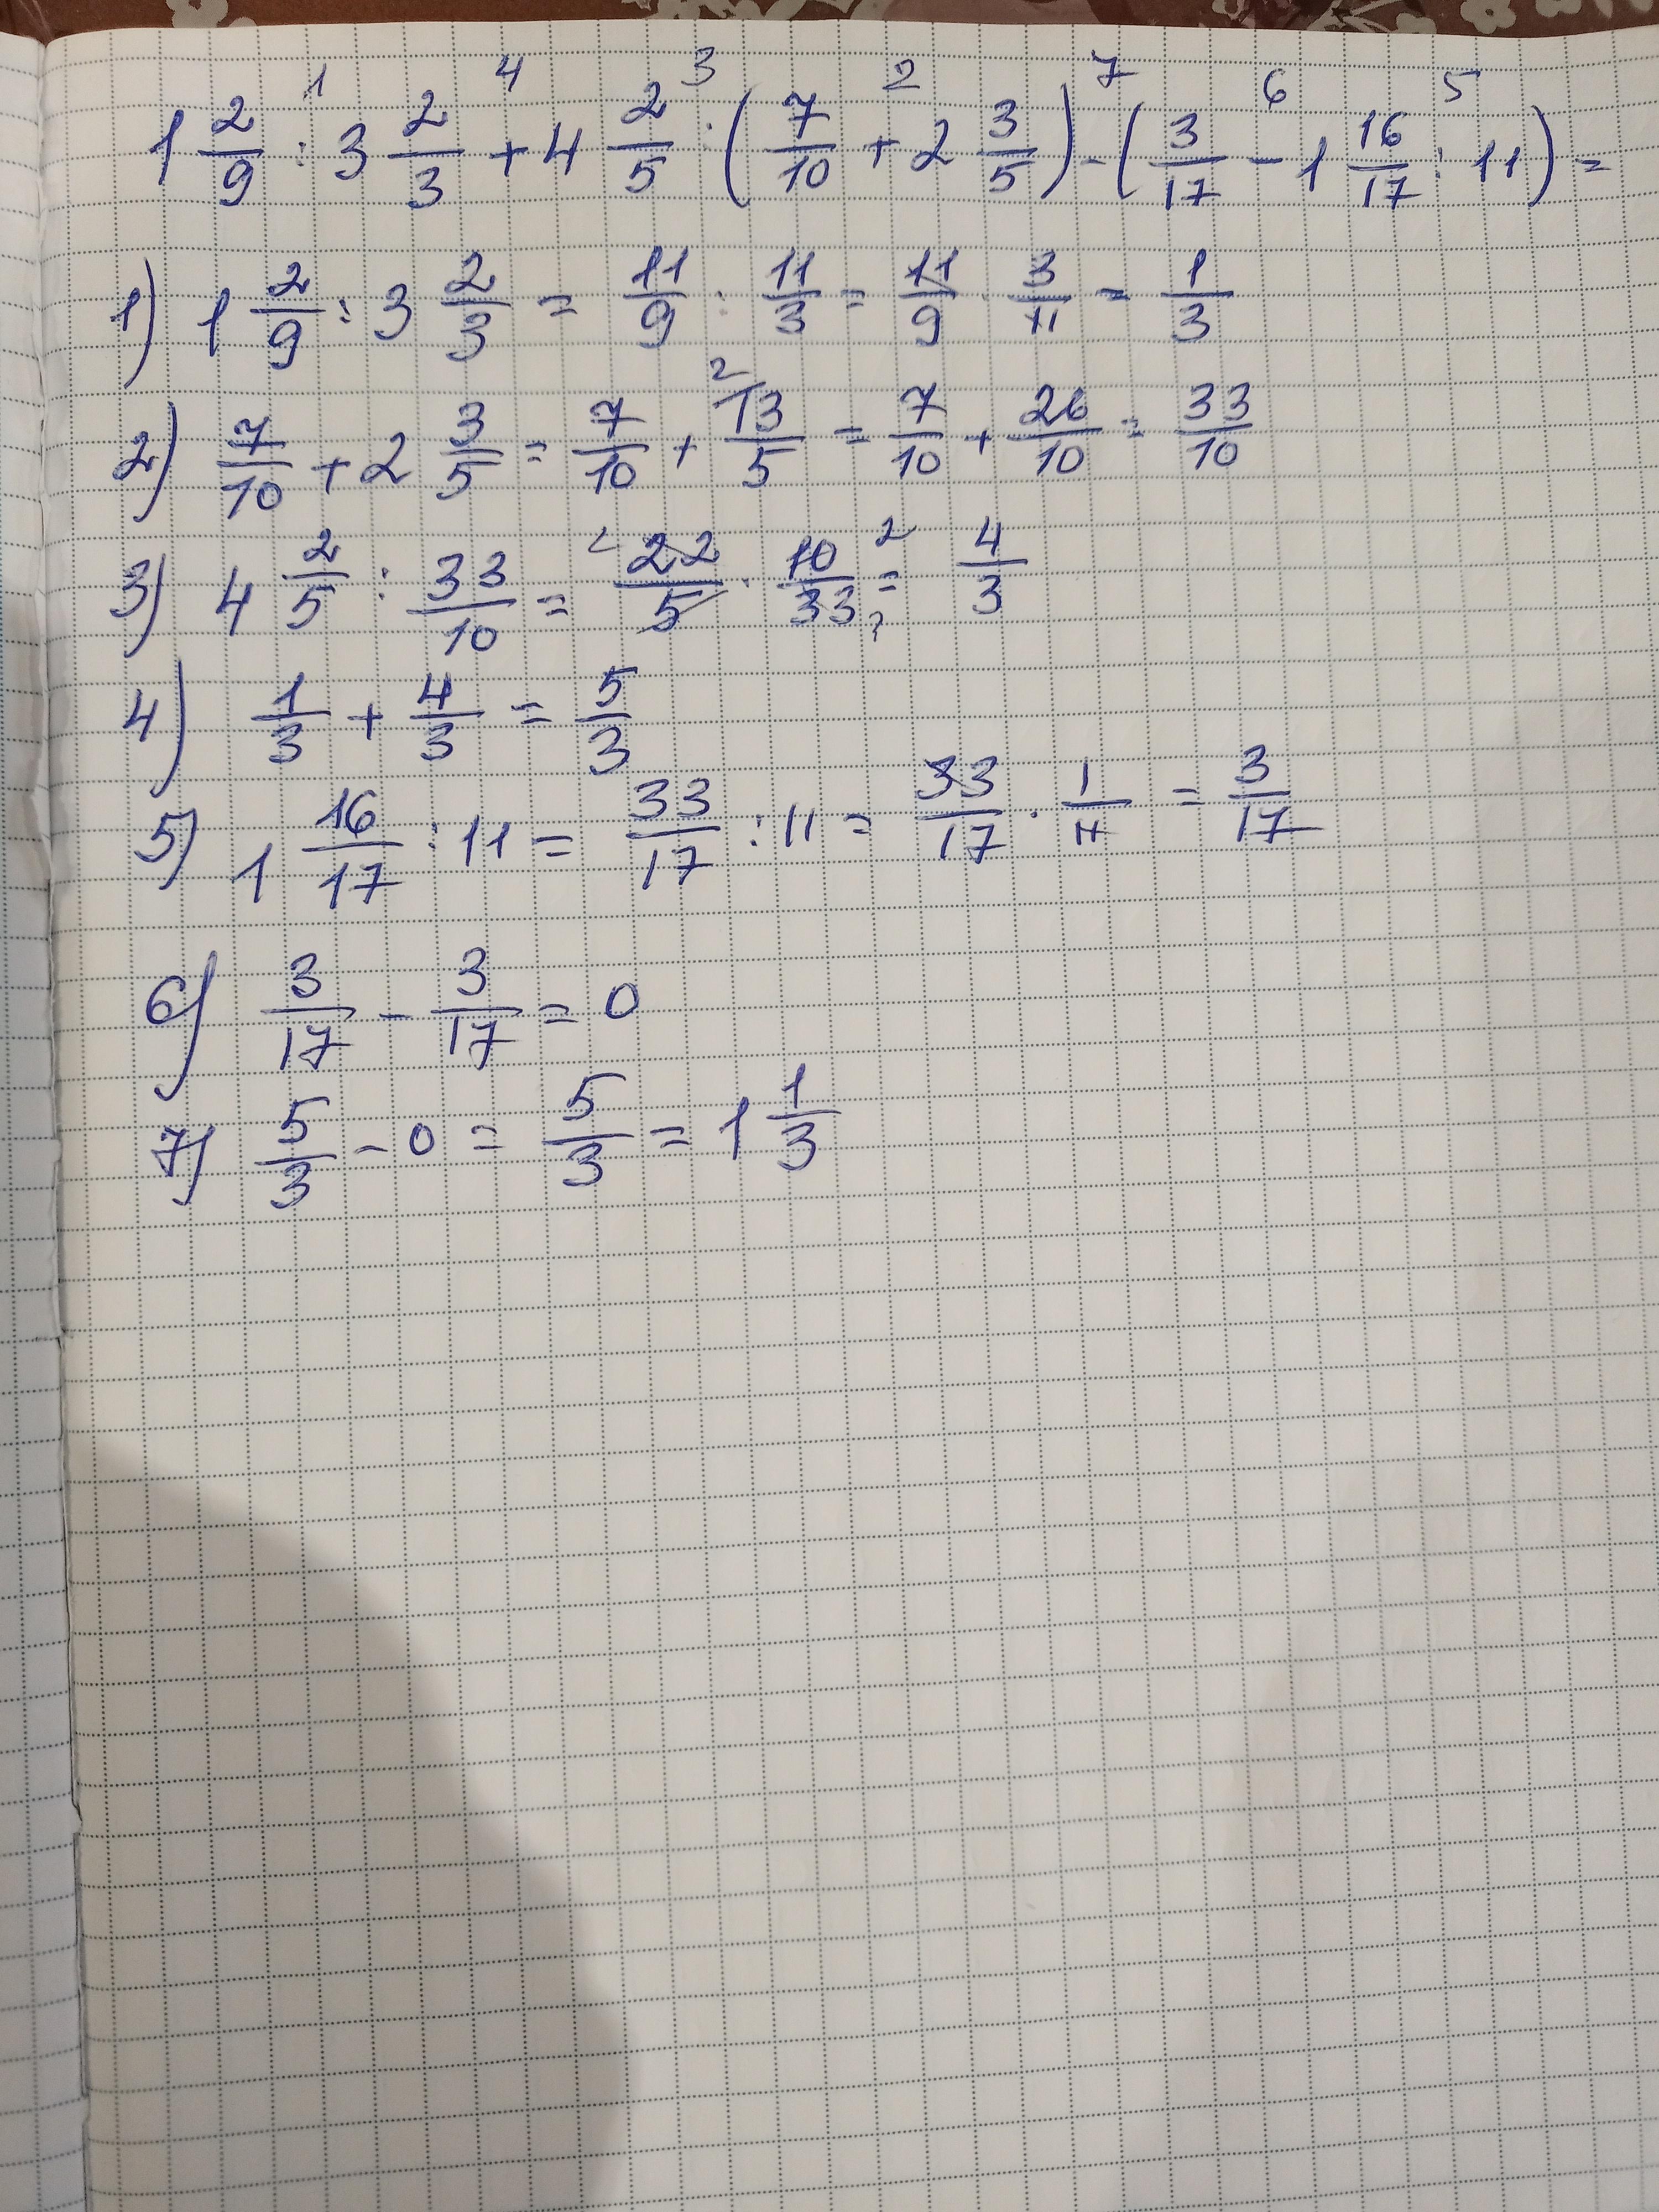 1 4 3 2 7 6 5
1 2/9 : 3 2/3 + 4 2/5 : (7/10 + 2 3/5) - (3/17 - 1 16/17 : 11) =
1) 1 2/9 : 3 2/3 = 11/9 : 11/3 = 11/9 · 3/11 = 1/3
2) 7/10 + 2 3/5 = 7/10 + 2 13/5 = 7/10 + 26/10 = 33/10
3) 4 2/5 : 33/10 = 2 22/5 · 10/33 2 3 = 4/3
4) 1/3 + 4/3 = 5/3
5) 1 16/17 : 11 = 33/17 : 11 = 33/17 · 1/11 = 3/17
6) 3/17 - 3/17 = 0
7) 5/3 - 0 = 5/3 = 1 1/3